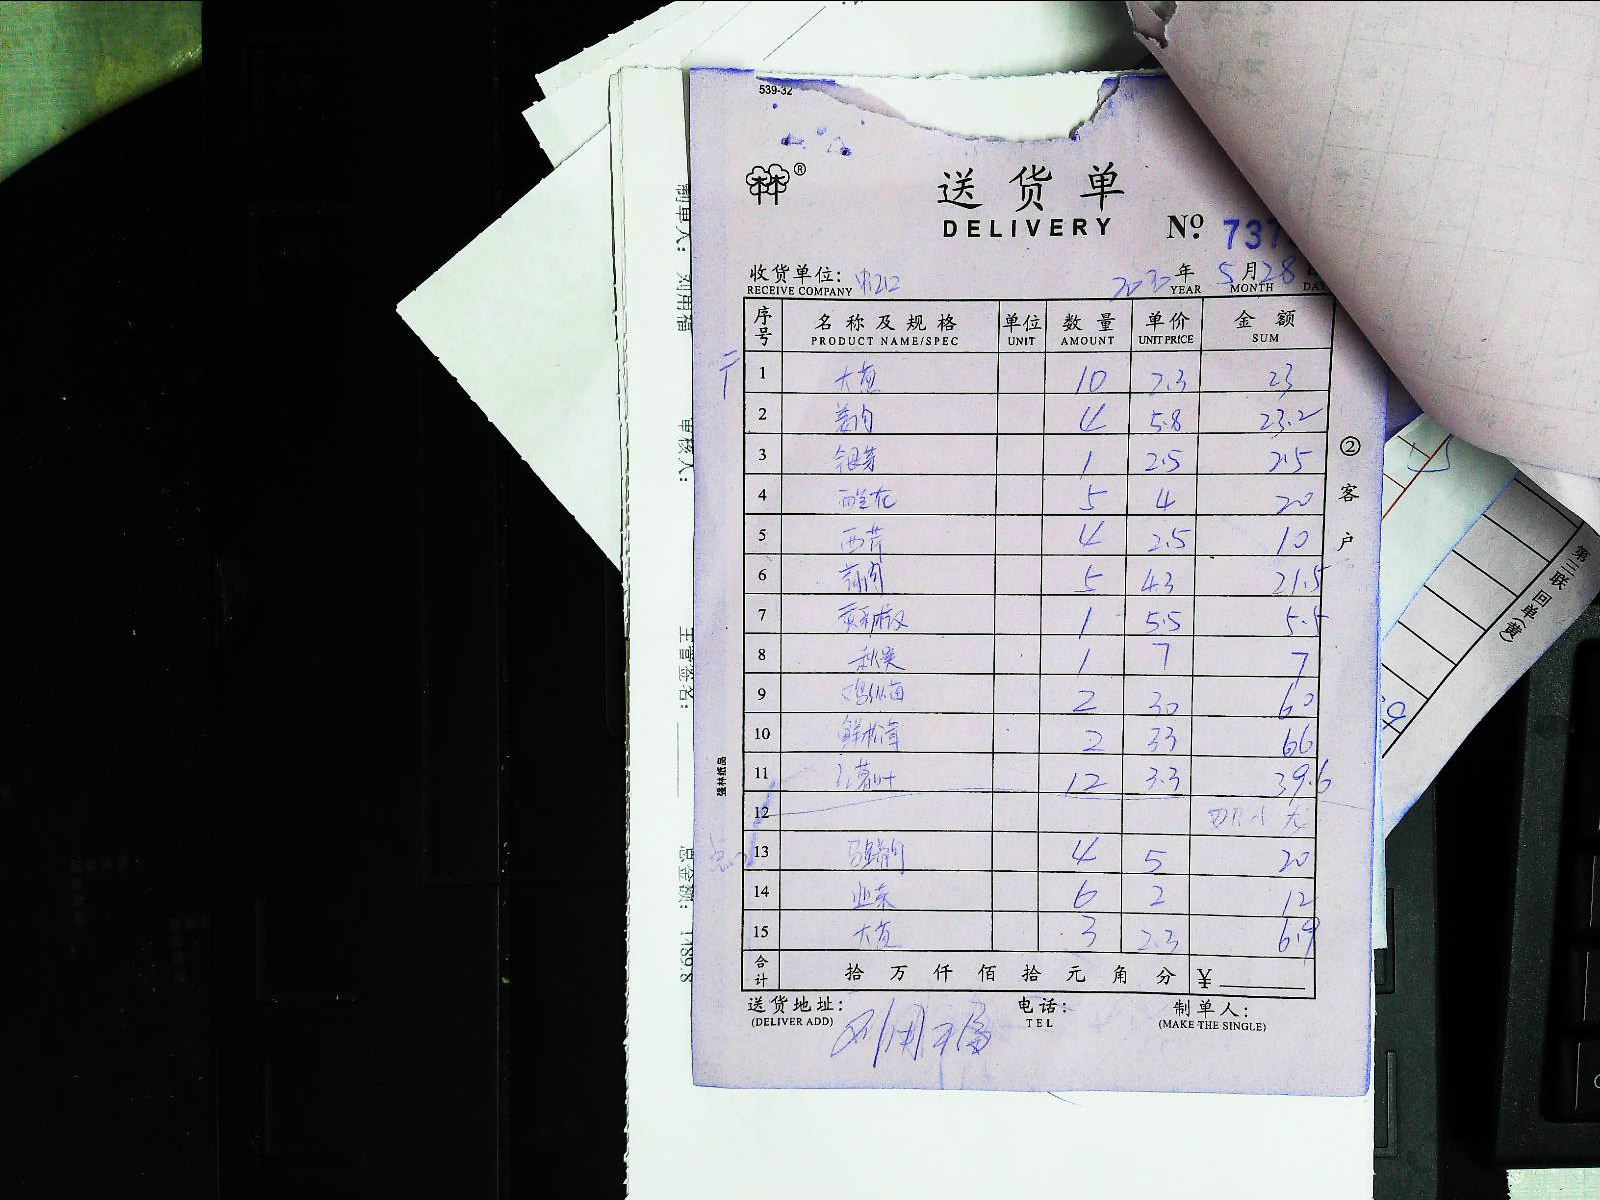 539-32
林®
送货单
DELIVERY
No 737
收货单位:
RECEIVE COMPANY
年 5 月 28
YEAR MONTH DAY
序号 名称及规格 单位 数量 单价 金额
PRODUCT NAME/SPEC UNIT AMOUNT UNIT PRICE SUM
1 大葱 10 2.3 23
2 姜肉 4 5.8 23.2
3 银芽 1 2.5 2.5
4 西兰花 5 4 20
5 西芹 4 2.5 10
6 5 4.3 21.5
7 1 5.5 5.5
8 秋葵 1 7 7
9 2 30 60
10 鲜松茸 2 33 66
11 红薯叶 12 3.3 39.6
12
13 4 5 20
14 韭菜 6 2 12
15 大葱 3 2.3 6.9
合计 拾 万 仟 佰 拾 元 角 分 ¥
送货地址: 电话: 制单人:
(DELIVER ADD) TEL (MAKE THE SINGLE)
刘用福
②客户
强林纸品
制单人: 刘用福
审核人:
主管签名:
总金额: 1489.8
第三联 回单(黄)